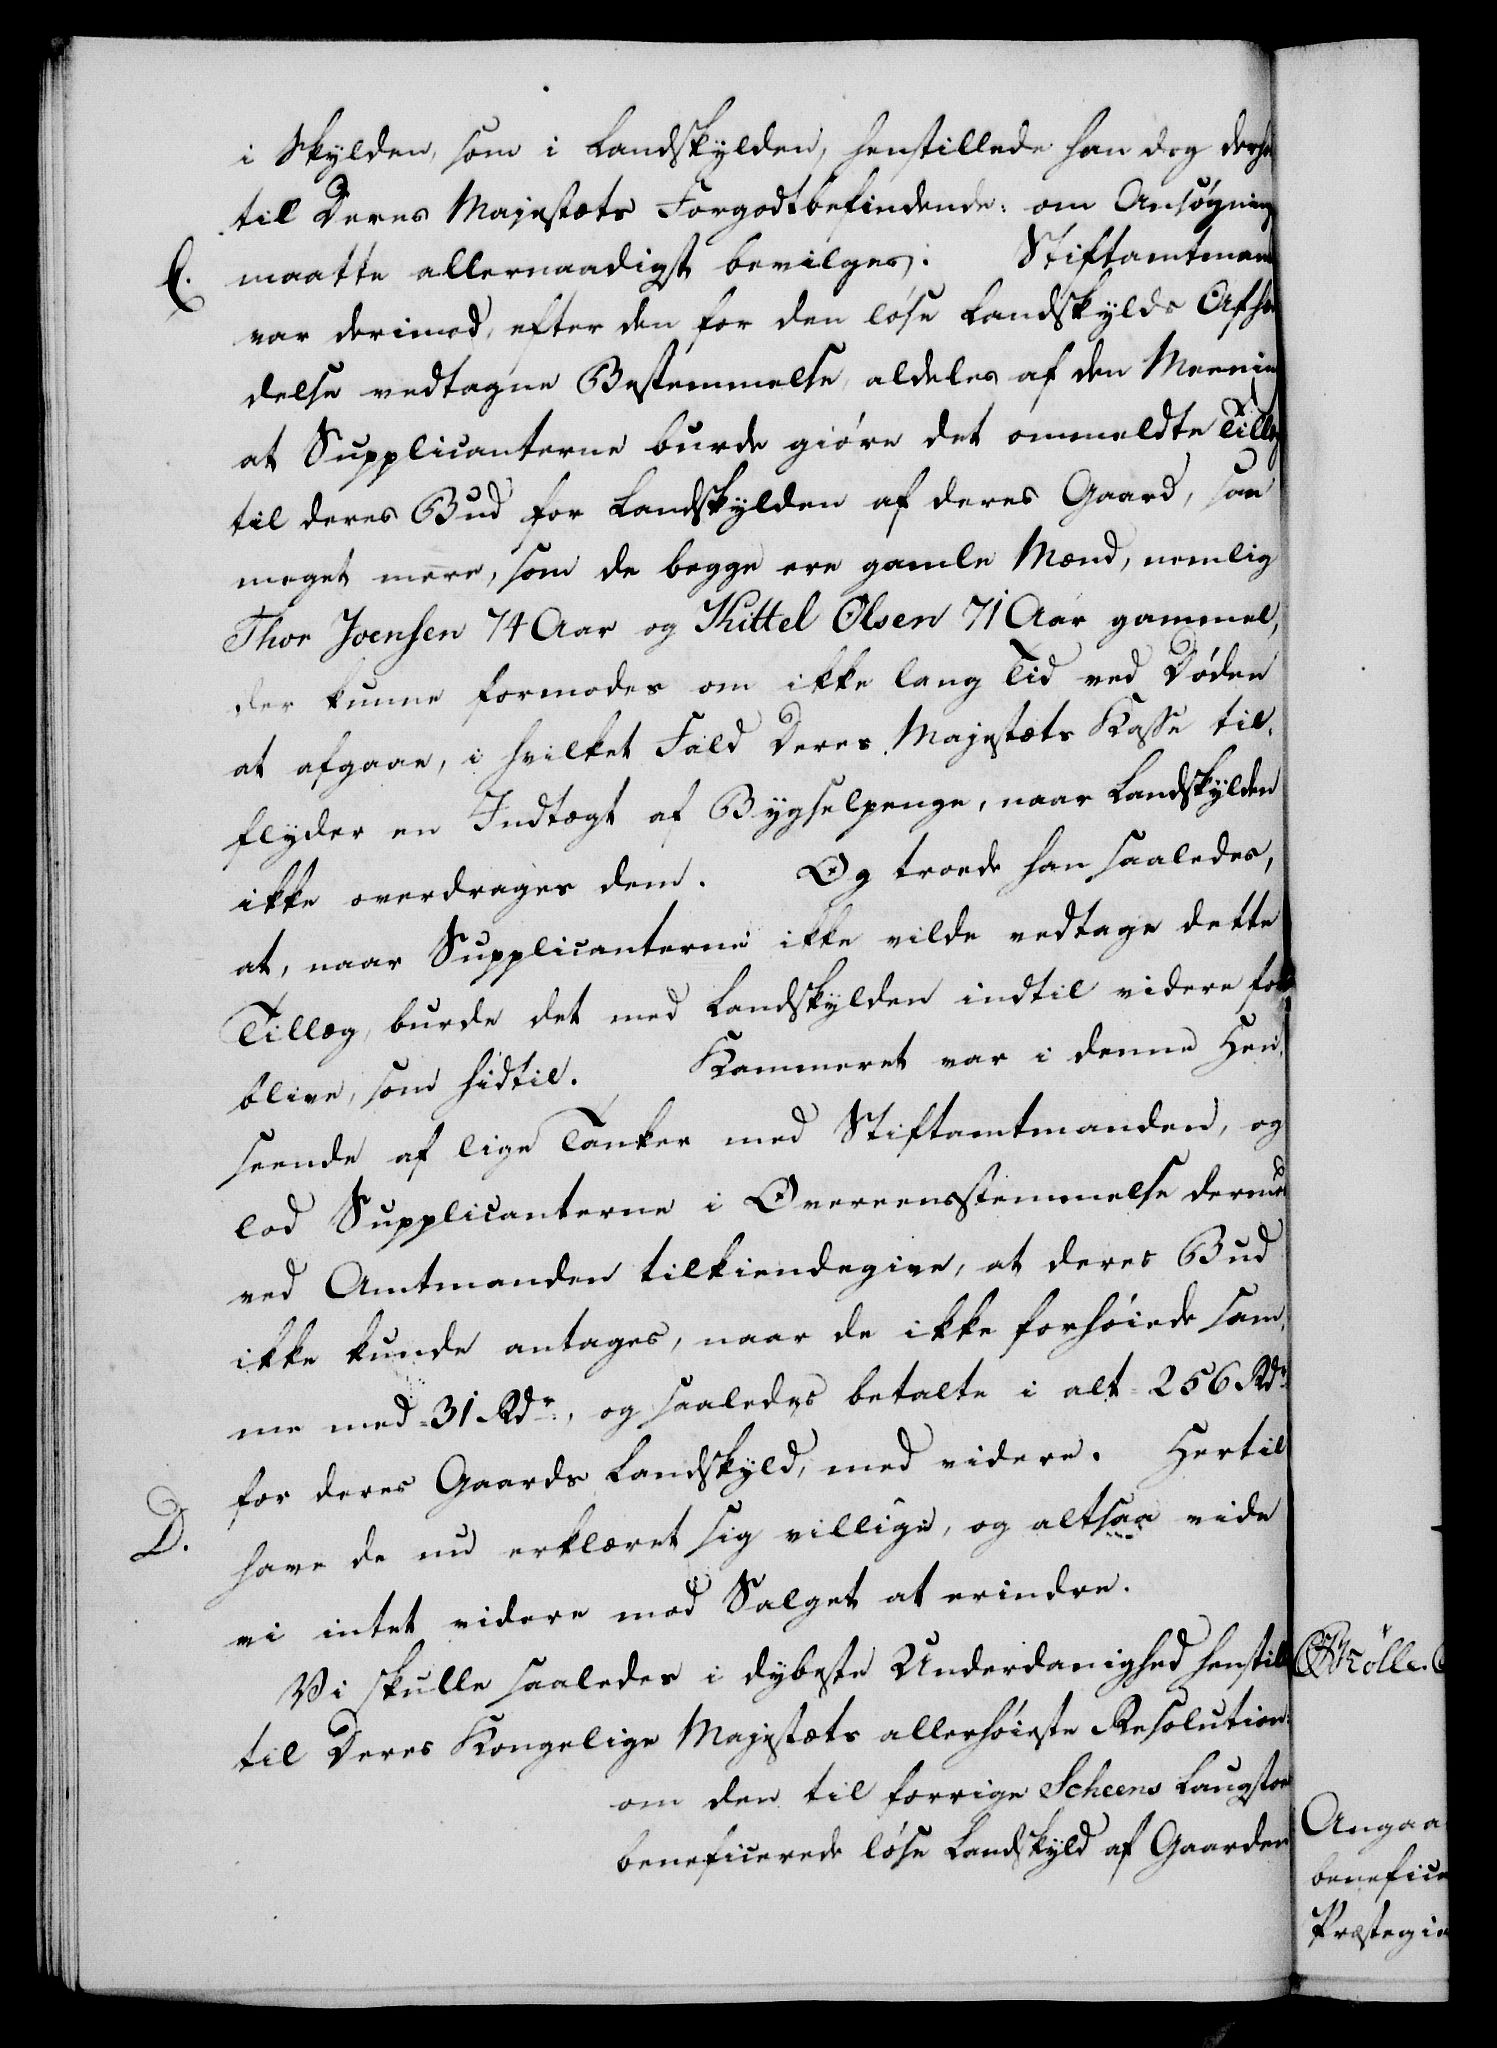 i Skylden, som i Landskylden, henstillede han dog
til Deres Majestæts Forgodtbefindende: om Ansøgning
C. maatte allernaadigst bevilges. Stiftamtmand
var derimod, efter den for den løse Landskylds Afhæn
delse vedtagne Bestemmelse, aldeles af den Meening
at Supplicanterne burde giøre det ommeldte Tillæg
til deres Bud for Landskylden af deres Gaard, saa
meget mere, som de begge ere gamle Mænd, nemlig
Thor Joensen 74 Aar og Kittel Olsen 71 Aar gammel,
der kunne formodes om ikke lang Tid ved Døden
at afgaae, i hvilket Fald Deres Majestæts Kasse til-
flyder en Indtægt af Bygselpenge, naar Landskylden
ikke overdrages dem. Og troede han saaledes,
at, naar Supplicanterne ikke vilde vedtage dette
Tillæg, burde det med Landskylden indtil videre for
blive, som hidtil. Kammeret var i denne Hen-
seende af lige Tanker med Stiftamtmanden, og
lod Supplicanterne i Overeensstemmelse dermed
ved Amtmanden tilkiendegive, at deres Bud
ikke kunde antages, naar de ikke forhøiede sam-
me med 31 Rdr., og saaledes betalte i alt 256 Rdr.
for deres Gaards Landskyld, med videre. Hertil
D. have de nu erklæret sig villige, og altsaa vide
vi intet videre mod Salget at erindre.
Vi skulle saaledes i dybeste Underdanighed henstill
til Deres Kongelige Majestæts allerhøieste Resolution:
om den til forrige Scheens Laugstoel
beneficerede løse Landskyld af Gaarden
Angaa
benefice
Præstegie